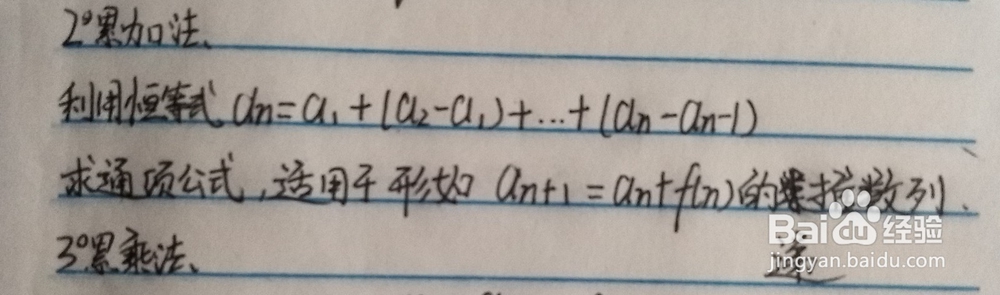 2°累加法、
利用恒等式 an=a₁+(a₂-a₁)+...+(an-an-1)
求通项公式,适用于形如 an+1=an+f(n)的推数列、
3°累乘法、
递
Bai经验
jingyan.baidu.com